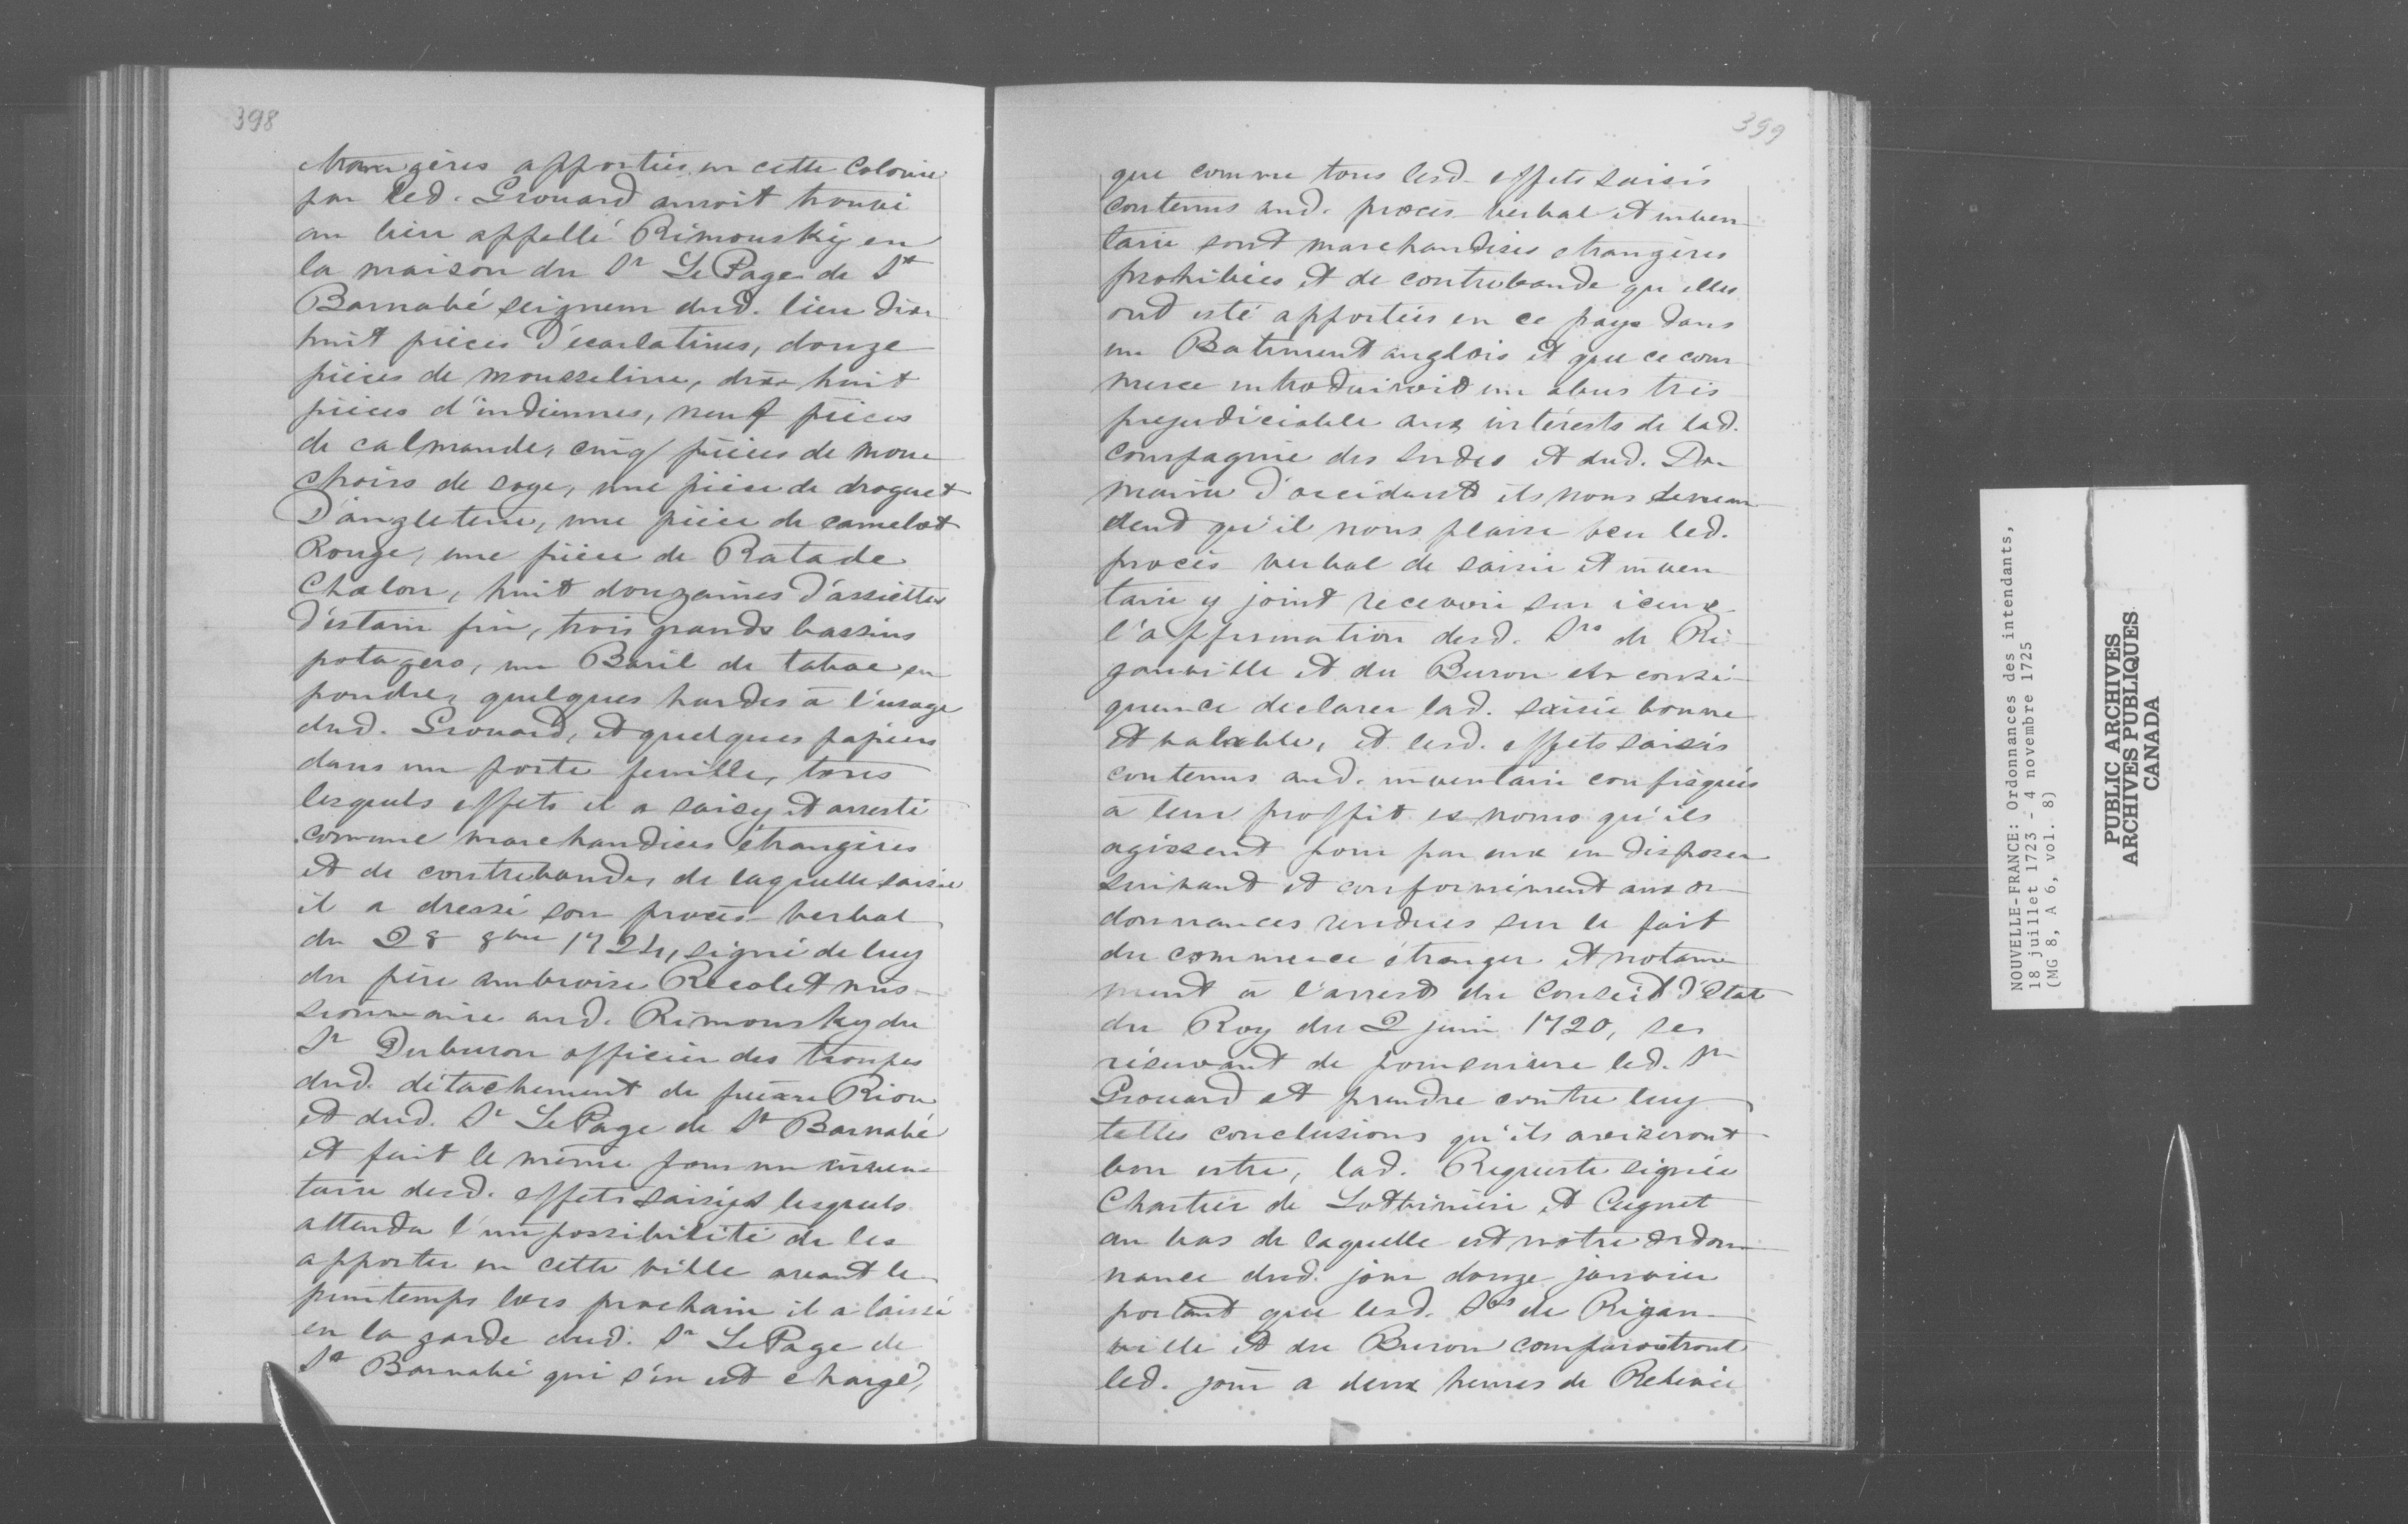 398
étrangères apportées en cette Colonie
par led. Grouard auroit trouvé
au lieu appellé Rimousky en
la maison du Sr LePage de St
Barnabé seigneur dud. lieu dix
huit pièces d'écarlatines, douze
pièces de mousseline, dix huit
pièces d'indiennes, neuf pièces
de calmande, cinq pièces de mou
choirs de soye, une pièce de droguet
D'angleterre, une pièce de camelot
Rouge, une pièce de Ratade
Chalon, huit douzaines d'assiettes
d'estain fin, trois grands bassins
potagers, un Baril de tabac en
poudre, quelques hardes à l'usage
dud. Grouard, et quelques papiers
dans un porte feuille, tous
lesquels effets il a saisy et arresté
comme marchandises étrangères
et de contrebande, de laquelle saisie
il a dressé son procès-verbal
du 28 8bre 1724, signé de luy
du père ambroise Recolet mis-
sionnaire aud. Rimousky du
Sr Duburon officier des troupes
dud. détachement de Riou
et dud. Sr LePage de St Barnabé
et fait le même jour un inven-
taire desd. effets saisies lesquels
attendu l'impossibilité de les
apporter en cette ville avant le
printemps lors prochain il a laissé
en la garde dud. Sr LePage de
St Barnabé qui s'en est chargé,
399
que comme tous lesd. effets saisis
contenus aud. procès-verbal et inven-
taire sont marchandises etrangères
prohibées et de contrebande qu'elles
ont esté apportées en ce pays dans
un Batiment anglois et que ce com
merce introduiroit un abus très
prejudiciable aux intérests de lad.
compagnie des Indes et dud. Do-
maine d'occident ils nous deman
dent qu'il nous plaise veu led.
procès verbal de saisie et inven
taire y joint recevoir sur iceux
l'affirmation desd. Srs de Ri-
gauville et du Buron en consé-
quence declarer lad. saisie bonne
et valable, et lesd. effets saisis
contenus aud. inventaire confisqués
à leur proffit es noms qu'ils
agissent pour par eux en disposer
suivant et conformément aux or-
donnances rendues sur le fait
du commerce étranger et notam-
ment à l'arrest du Conseil d'Etat
du Roy du 2 juin 1720, se
réservant de poursuivre led. Sr
Grouard et prendre contre luy
telles conclusions qu'ils aviseront
bon estre, lad. Requeste signée
Chartier de Lotbinière et Cugnet
au bas de laquelle est notre ordon-
nance dud. jour douze janvier
portant que lesd. Srs de Rigau-
ville et du Buron comparoitront
led. jour a deux heures de Relevée
NOUVELLE-FRANCE: Ordonnances des intendants,
18 juillet 1723 - 4 novembre 1725
(MG 8, A 6, vol. 8)
PUBLIC ARCHIVES
ARCHIVES PUBLIQUES
CANADA